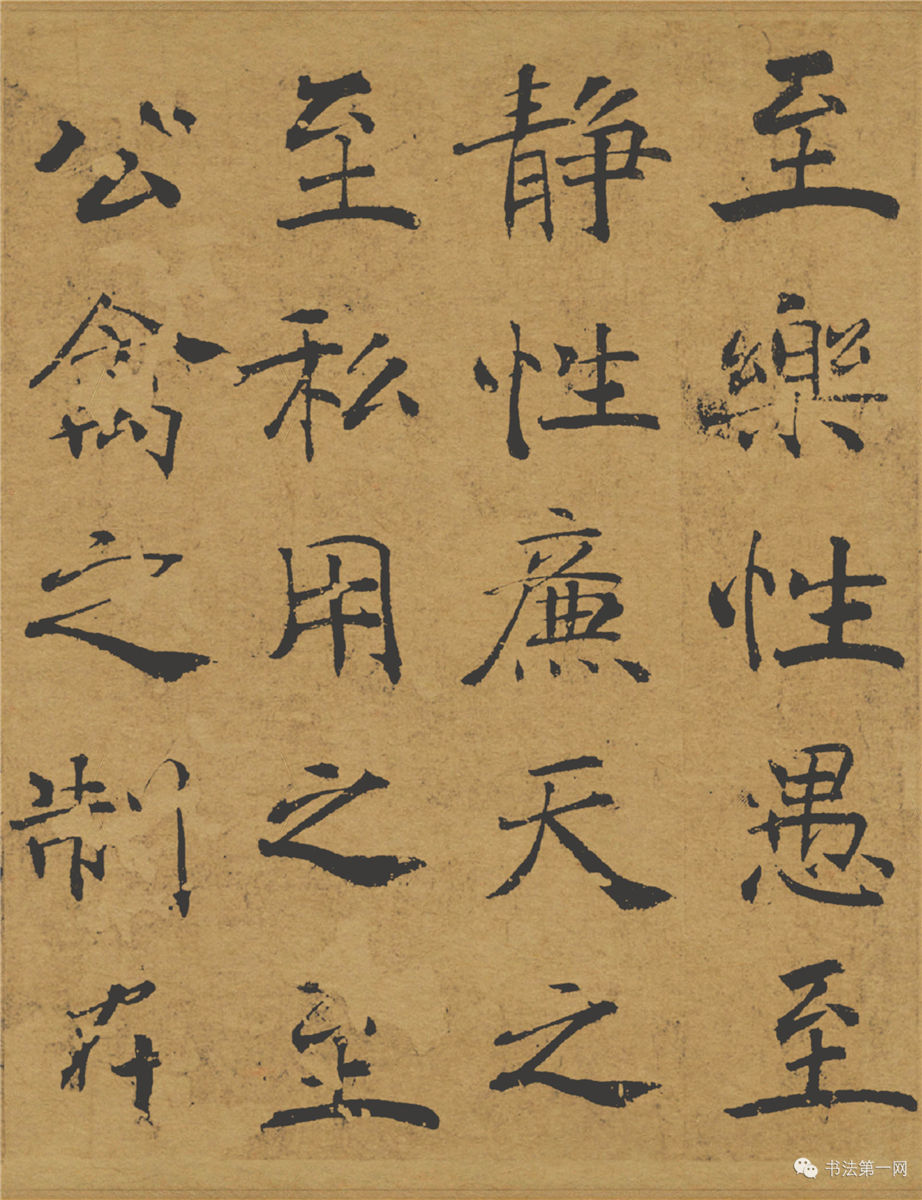 至樂性愚至
静性廉天之
至私用之至
公禽之制
书法第一网